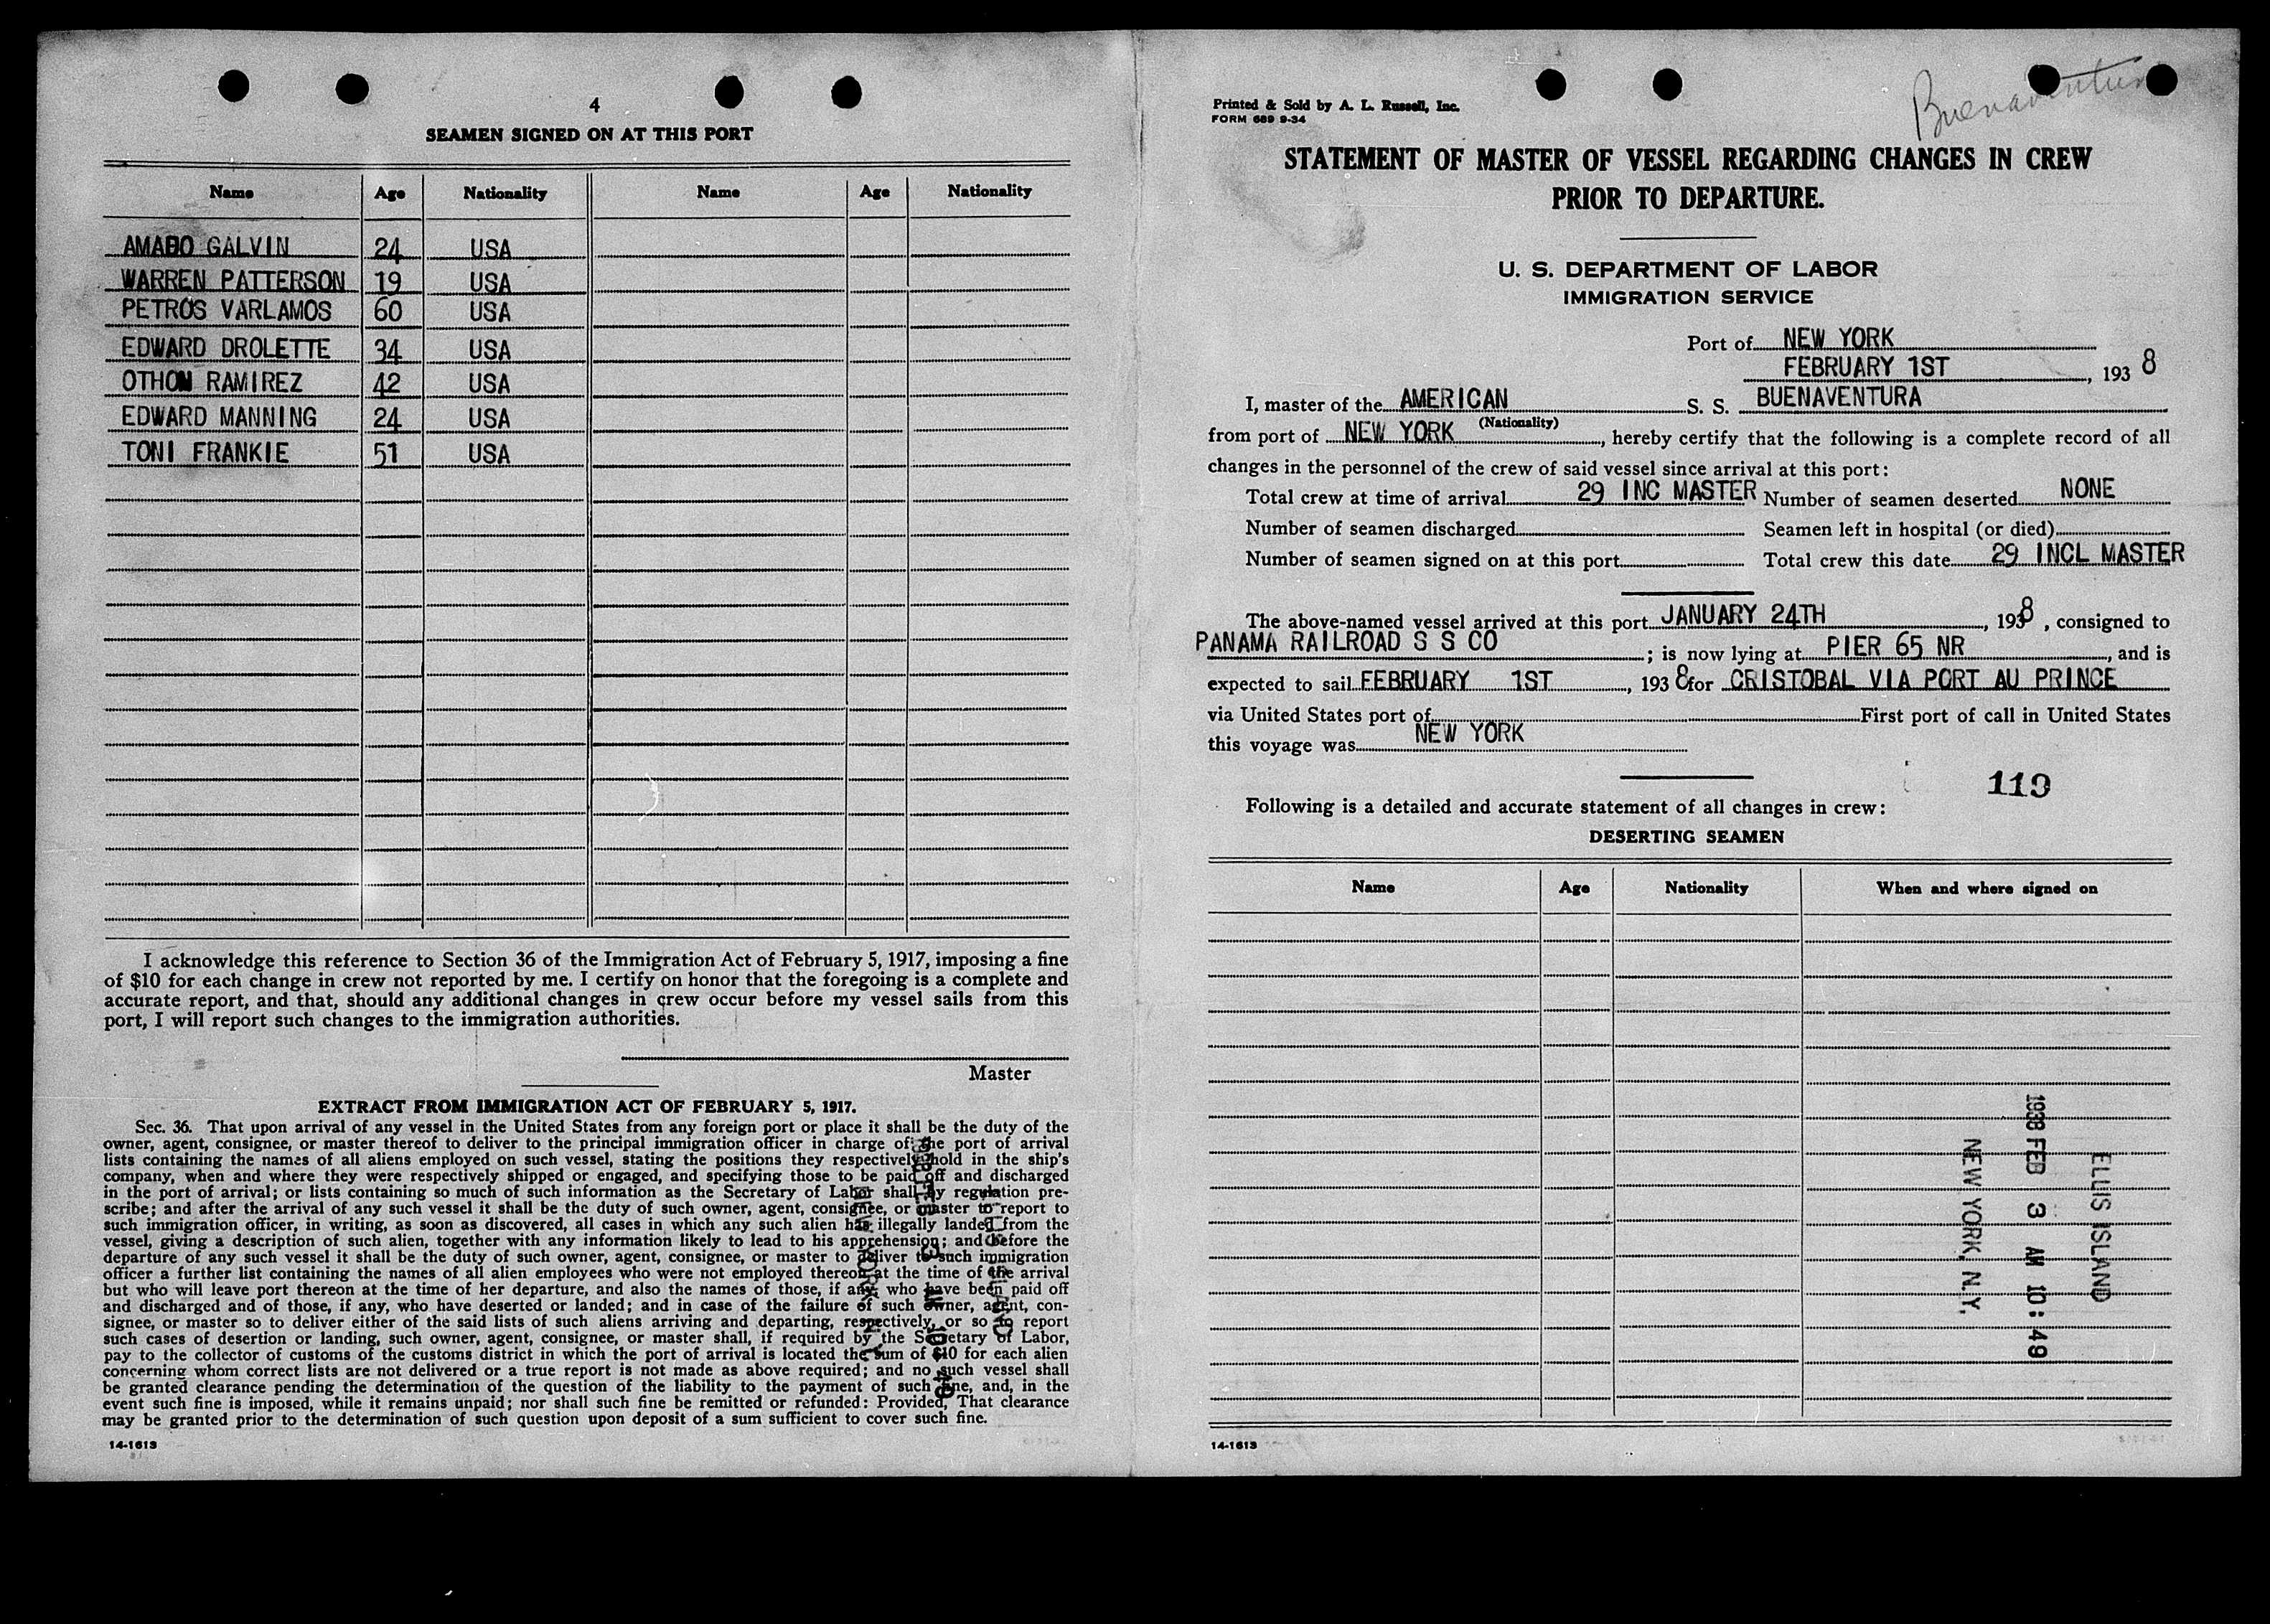 4
SEAMEN SIGNED ON AT THIS PORT
Name Age Nationality Name Age Nationality
AMADO GALVIN 24 USA
WARREN PATTERSON 19 USA
PETROS VARLAMOS 60 USA
EDWARD DROLETTE 34 USA
OTHON RAMIREZ 42 USA
EDWARD MANNING 24 USA
TONI FRANKIE 51 USA
I acknowledge this reference to Section 36 of the Immigration Act of February 5, 1917, imposing a fine
of $10 for each change in crew not reported by me. I certify on honor that the foregoing is a complete and
accurate report, and that, should any additional changes in crew occur before my vessel sails from this
port, I will report such changes to the immigration authorities.
Master
EXTRACT FROM IMMIGRATION ACT OF FEBRUARY 5, 1917.
Sec. 36. That upon arrival of any vessel in the United States from any foreign port or place it shall be the duty of the
owner, agent, consignee, or master thereof to deliver to the principal immigration officer in charge of the port of arrival
lists containing the names of all aliens employed on such vessel, stating the positions they respectively hold in the ship's
company, when and where they were respectively shipped or engaged, and specifying those to be paid off and discharged
in the port of arrival; or lists containing so much of such information as the Secretary of Labor shall by regulation pre-
scribe; and after the arrival of any such vessel it shall be the duty of such owner, agent, consignee, or master to report to
such immigration officer, in writing, as soon as discovered, all cases in which any such alien has illegally landed from the
vessel, giving a description of such alien, together with any information likely to lead to his apprehension; and before the
departure of any such vessel it shall be the duty of such owner, agent, consignee, or master to deliver to such immigration
officer a further list containing the names of all alien employees who were not employed thereon at the time of the arrival
but who will leave port thereon at the time of her departure, and also the names of those, if any, who have been paid off
and discharged and of those, if any, who have deserted or landed; and in case of the failure of such owner, agent, con-
signee, or master so to deliver either of the said lists of such aliens arriving and departing, respectively, or so to report
such cases of desertion or landing, such owner, agent, consignee, or master shall, if required by the Secretary of Labor,
pay to the collector of customs of the customs district in which the port of arrival is located the sum of $10 for each alien
concerning whom correct lists are not delivered or a true report is not made as above required; and no such vessel shall
be granted clearance pending the determination of the question of the liability to the payment of such fine, and, in the
event such fine is imposed, while it remains unpaid; nor shall such fine be remitted or refunded: Provided, That clearance
may be granted prior to the determination of such question upon deposit of a sum sufficient to cover such fine.
14-1613
1938 FEB 3 AM 10:49
ELLIS ISLAND
NEW YORK, N.Y.
Printed & Sold by A. L. Russell, Inc.
FORM 689 9-34
Buenaventura
STATEMENT OF MASTER OF VESSEL REGARDING CHANGES IN CREW
PRIOR TO DEPARTURE.
U. S. DEPARTMENT OF LABOR
IMMIGRATION SERVICE
Port of NEW YORK
FEBRUARY 1ST, 1938
I, master of the AMERICAN S. S. BUENAVENTURA
(Nationality)
from port of NEW YORK, hereby certify that the following is a complete record of all
changes in the personnel of the crew of said vessel since arrival at this port:
Total crew at time of arrival 29 INC MASTER Number of seamen deserted NONE
Number of seamen discharged Seamen left in hospital (or died)
Number of seamen signed on at this port Total crew this date 29 INCL MASTER
The above-named vessel arrived at this port JANUARY 24TH, 1938, consigned to
PANAMA RAILROAD S S CO; is now lying at PIER 65 NR, and is
expected to sail FEBRUARY 1ST, 1938 for CRISTOBAL VIA PORT AU PRINCE
via United States port of First port of call in United States
this voyage was NEW YORK
119
Following is a detailed and accurate statement of all changes in crew:
DESERTING SEAMEN
Name Age Nationality When and where signed on
ELLIS ISLAND
1938 FEB 3 AM 10:49
NEW YORK, N.Y.
14-1613